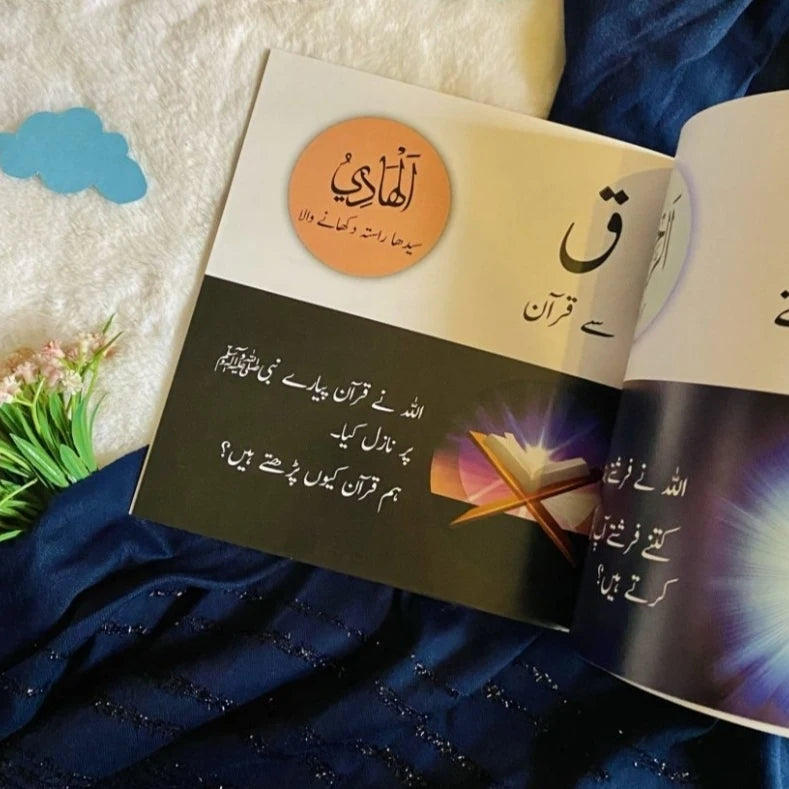 اَلْهَادِيُ
سیدھا راستہ دکھانے والا
ق
سے قرآن
اللہ نے قرآن پیارے نبی ﷺ
پر نازل کیا۔
ہم قرآن کیوں پڑھتے ہیں؟
اللہ نے فرشتے
کتنے فرشتے
کرتے ہیں؟